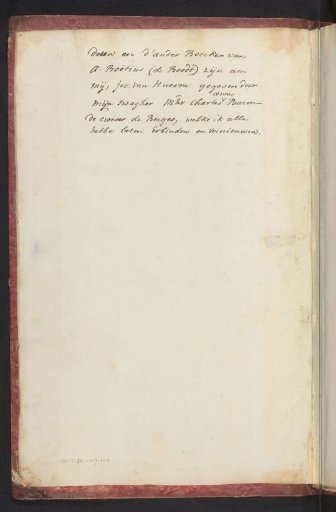 desen en d'ander Boecken van
A. Boëtius (de Boodt) zijn aen
mij, jos. van Huerne gegeven door
mijn swagher Mhr Charles Aeneas Baron
de Croeser de Berges, welke ik alle
hebbe laten Erbinden en vernieuwen.